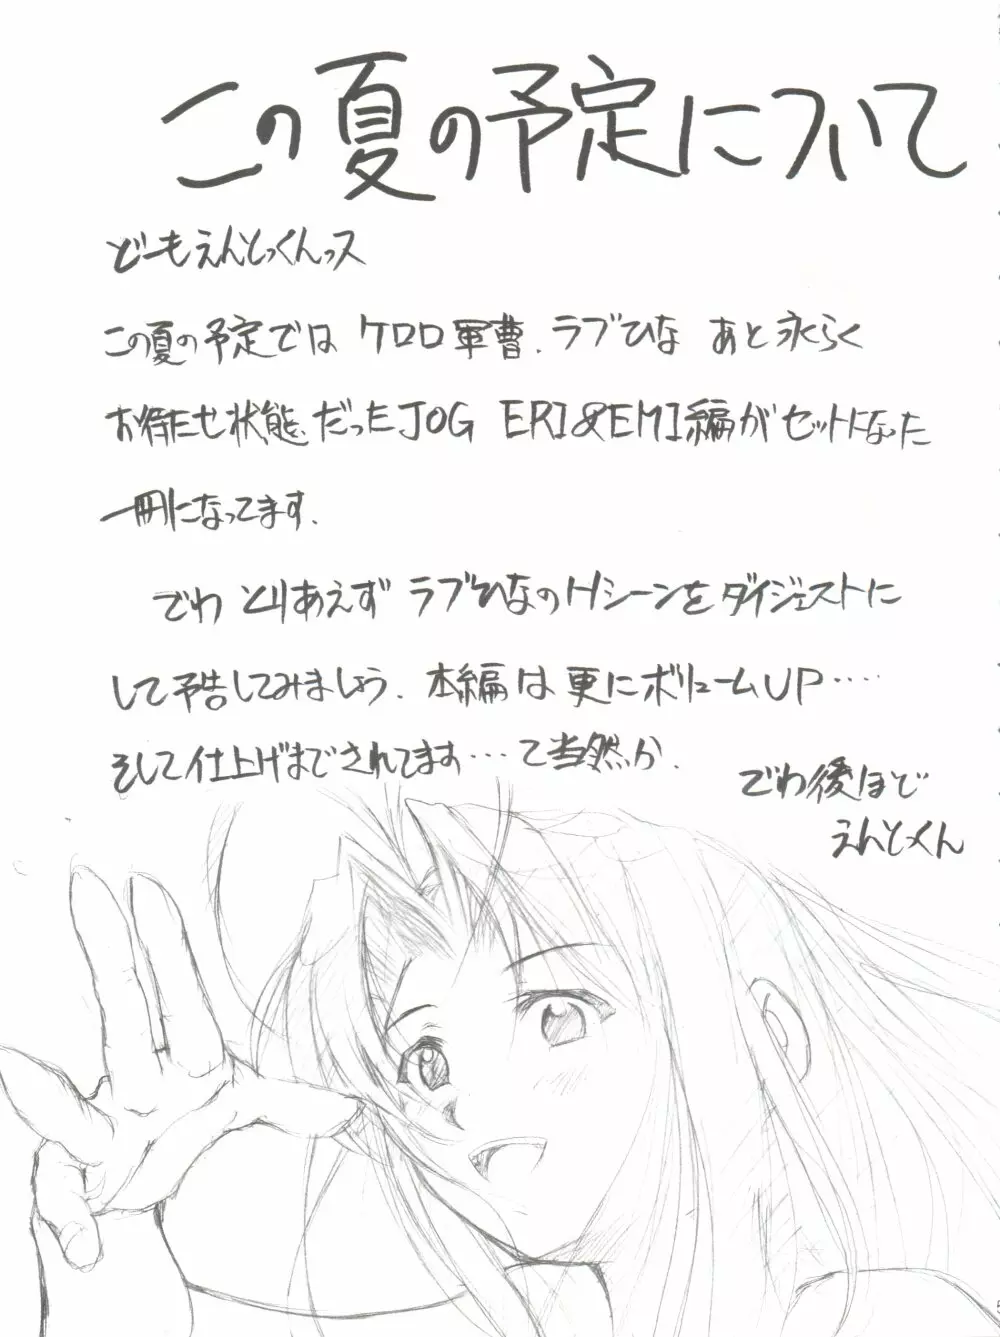 この夏の予定について
どーもえんとっくんっス
この夏の予定では ケロロ軍曹、ラブひな あと永らく
お待たせ状態だったJOG ERI&EMI編がセットになった
一冊になってます.
でわ とりあえず ラブひなのHシーンをダイジェストに
して予告してみましょう. 本編は更にボリュームUP‥‥
そして仕上げまでされてます…て当然か.
でわ後ほど
えんとくん
5